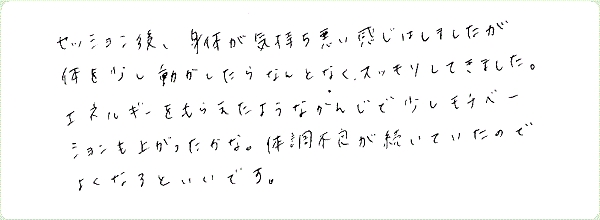 セッション後、身体が気持ち悪い感じはしましたが
体を少し動かしたらなんとなく、スッキリしてきました。
エネルギーをもらえたようなかんじで少しモチベー
ションも上がったかな。体調不良が続いていたので
よくなるといいです。